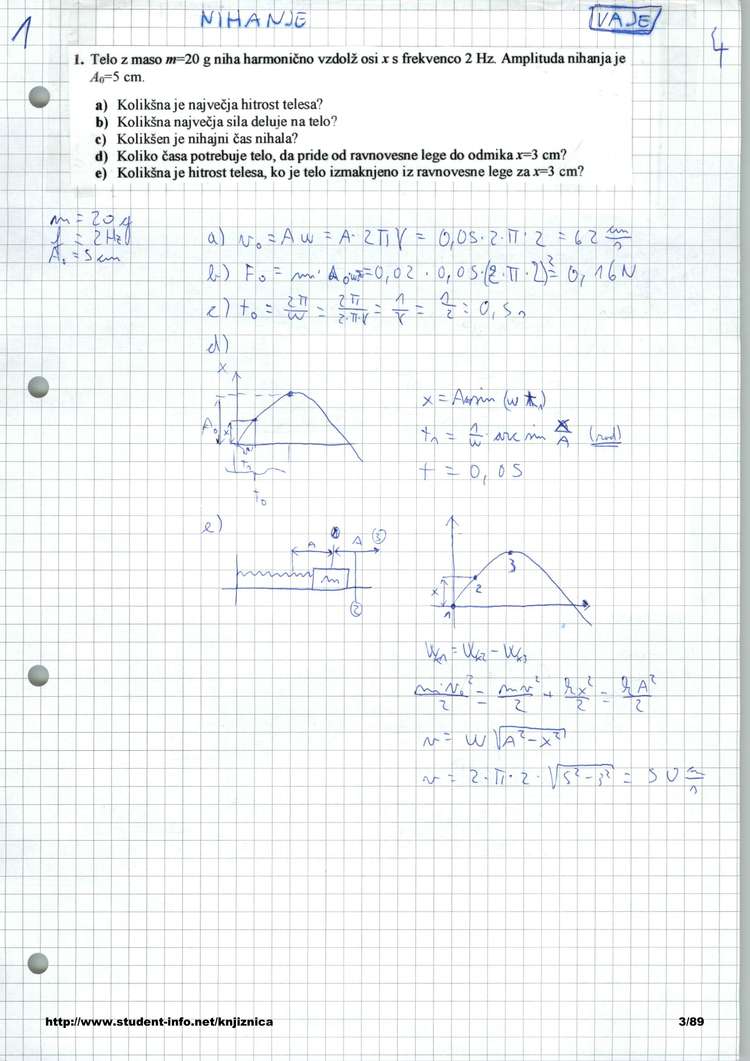 1 NIHANJE VAJE 4
1. Telo z maso m=20 g niha harmonično vzdolž osi x s frekvenco 2 Hz. Amplituda nihanja je
A₀=5 cm.
a) Kolikšna je največja hitrost telesa?
b) Kolikšna največja sila deluje na telo?
c) Kolikšen je nihajni čas nihala?
d) Koliko časa potrebuje telo, da pride od ravnovesne lege do odmika x=3 cm?
e) Kolikšna je hitrost telesa, ko je telo izmaknjeno iz ravnovesne lege za x=3 cm?
m = 20 g
f = 2 Hz
A₀ = 5 cm
a) v₀ = Aω = A·2πν = 0,05·2·π·2 = 62 cm/s
b) F₀ = m·A₀ω² = 0,02·0,05·(2·π·2)² = 0,16 N
c) t₀ = 2π/ω = 2π/2·π·ν = 1/ν = 1/2 = 0,5 s
d)
x
A₀ x
t₁
t₀
x = A₀ sin (ω t₁)
t₁ = 1/ω · arc sin x/A (rad)
t = 0,05
e)
A A ③
m
②
x 1 2 3
mv₀²/2 = mv²/2 + kx²/2 = kA²/2
v = ω √(A²-x²)
v = 2·π·2·√(5²-3²) = 50 cm/s
http://www.student-info.net/knjiznica 3/89